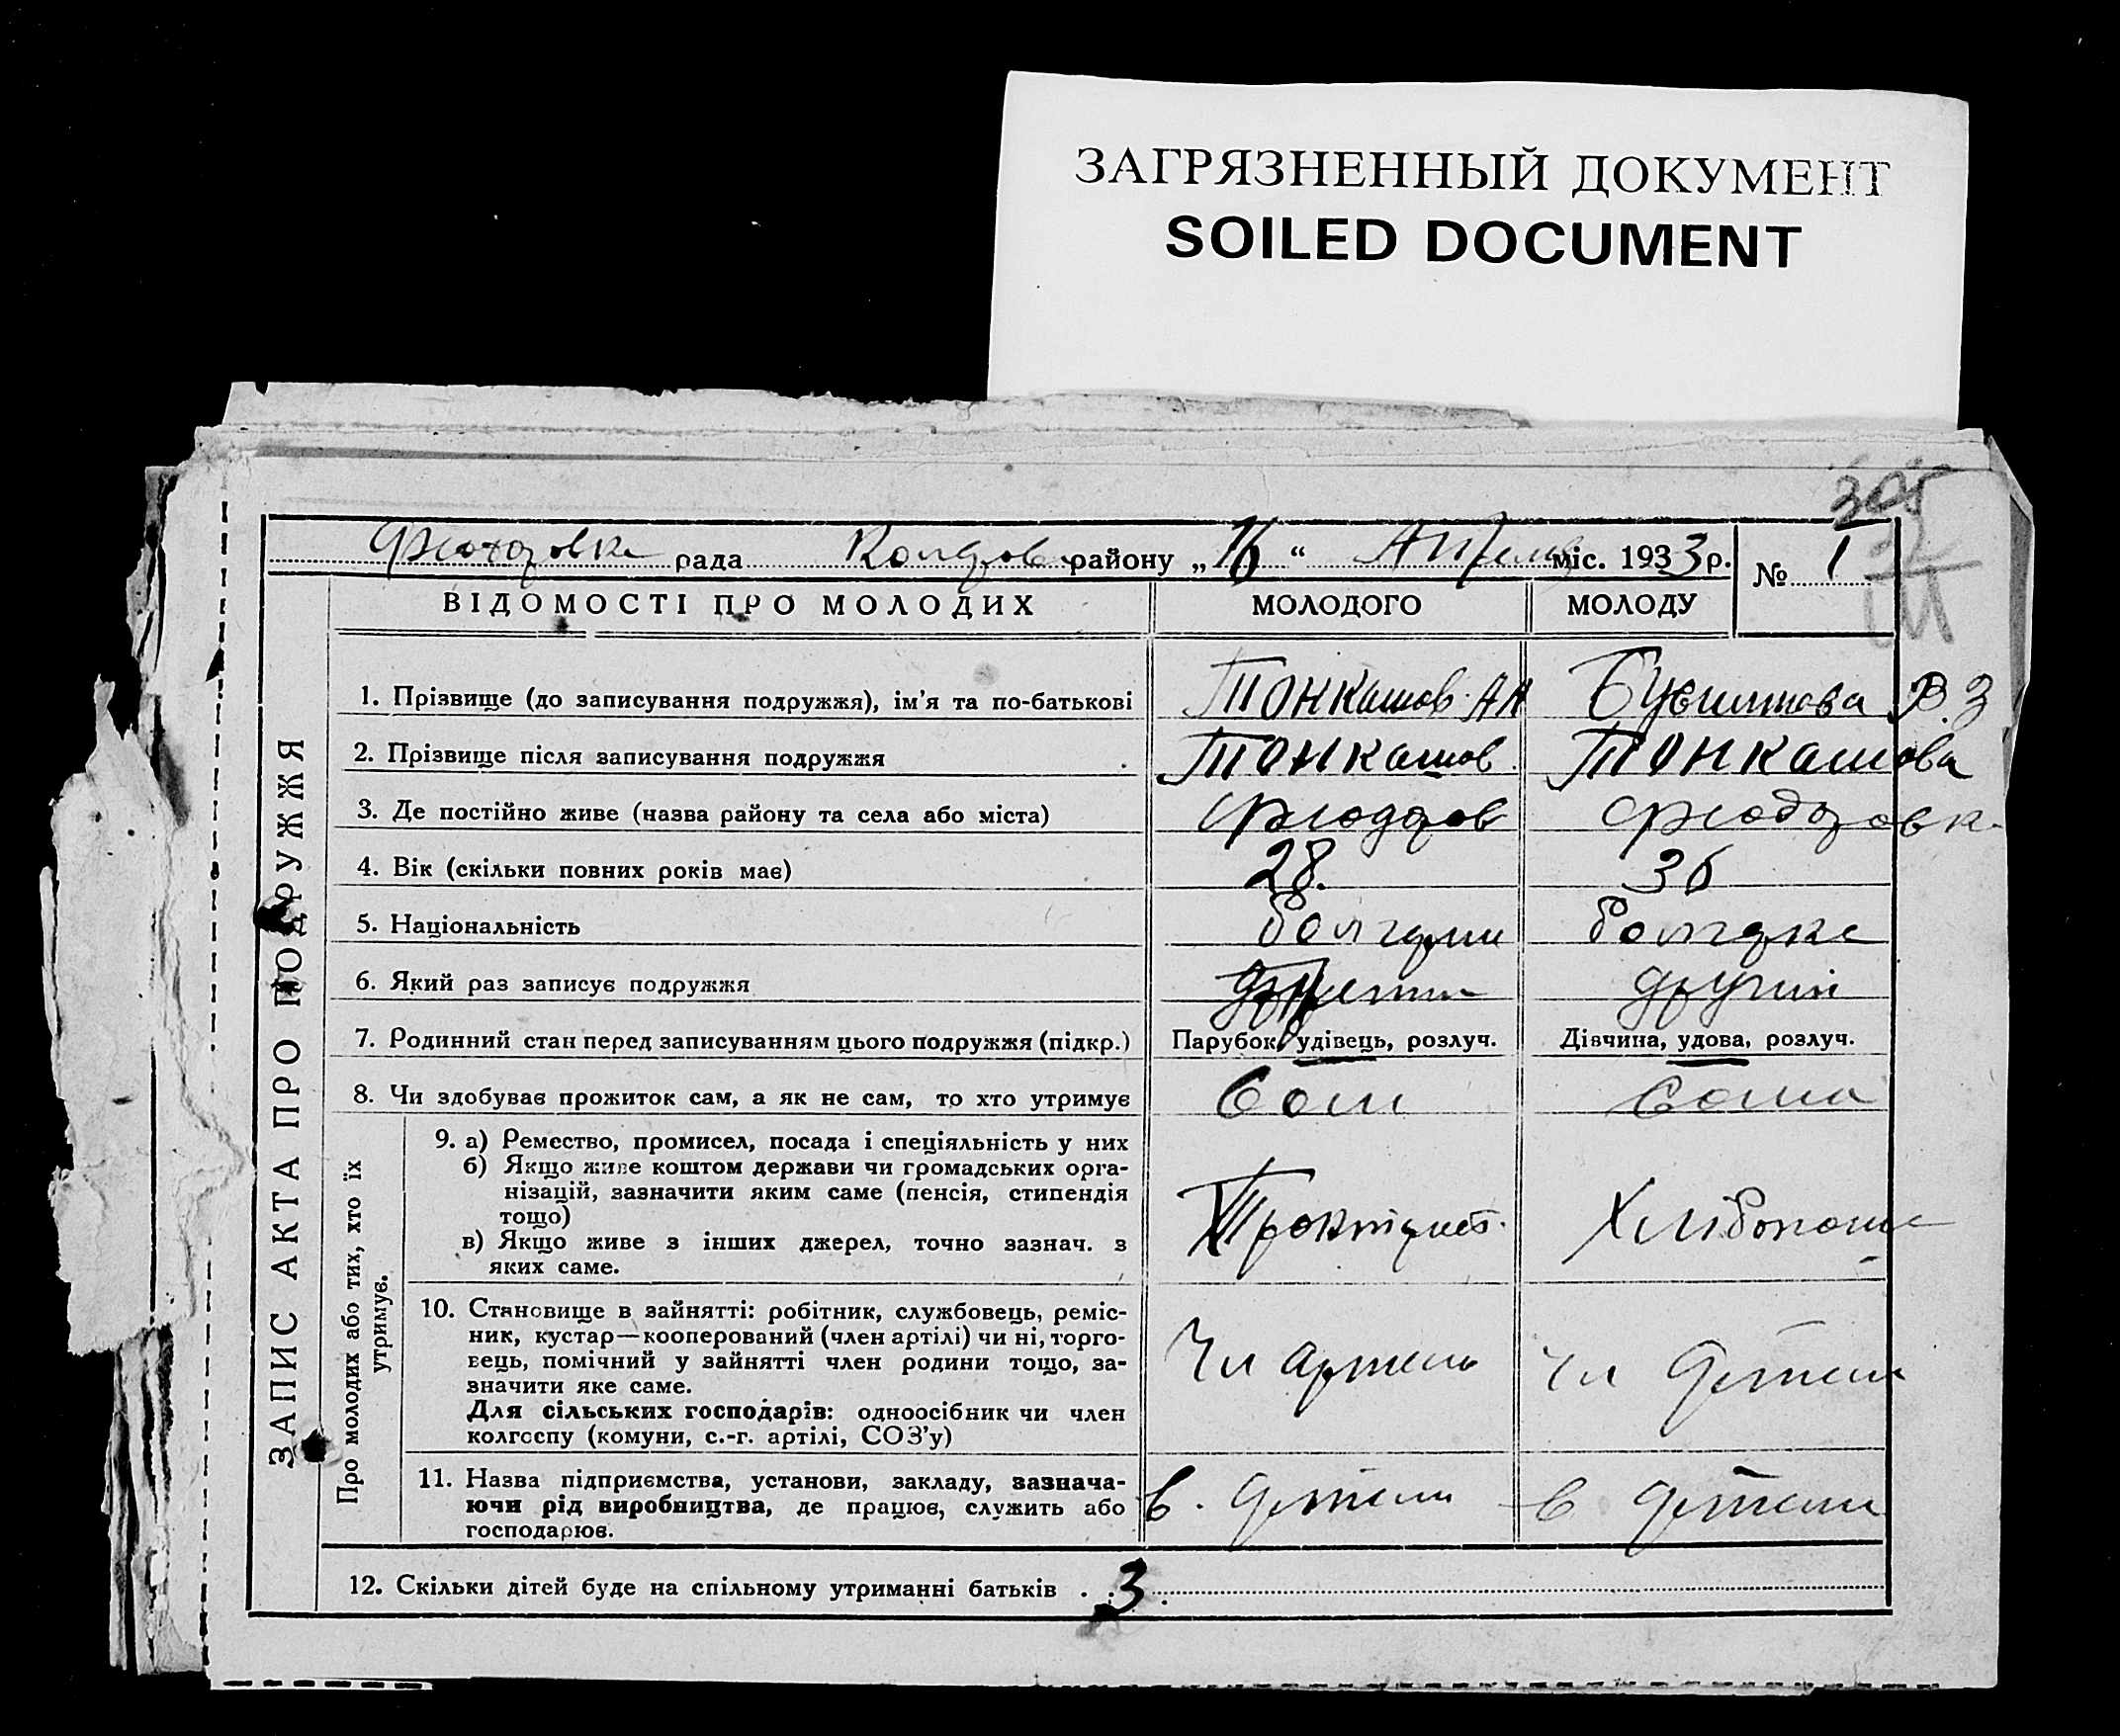 ЗАГРЯЗНЕННЫЙ ДОКУМЕНТ
SOILED DOCUMENT
рада району „16“ міс. 1933 р. № 1
ВІДОМОСТІ ПРО МОЛОДИХ МОЛОДОГО МОЛОДУ
ЗАПИС АКТА ПРО ПОДРУЖЖЯ
1. Прізвище (до записування подружжя), ім'я та по-батькові Тонкашов А
2. Прізвище після записування подружжя Тонкашов Тонкашова
3. Де постійно живе (назва району та села або міста)
4. Вік (скільки повних років має) 28. 36
5. Національність болгарин болгарка
6. Який раз записує подружжя другий
7. Родинний стан перед записуванням цього подружжя (підкр.) Парубок, удівець, розлуч. Дівчина, удова, розлуч.
8. Чи здобуває прожиток сам, а як не сам, то хто утримує Сам Сама
Про молодих або тих, хто їх утримує.
9. а) Ремество, промисел, посада і спеціяльність у них
б) Якщо живе коштом держави чи громадських орга-
нізацій, зазначити яким саме (пенсія, стипендія
тощо)
в) Якщо живе з інших джерел, точно зазнач. з
яких саме.
10. Становище в зайнятті: робітник, службовець, реміс-
ник, кустар—кооперований (член артілі) чи ні, торго-
вець, помічний у зайнятті член родини тощо, за-
значити яке саме.
Для сільських господарів: одноосібник чи член
колгоспу (комуни, с.-г. артілі, СОЗ'у)
Чл артели Чл артели
11. Назва підприємства, установи, закладу, зазнача-
ючи рід виробництва, де працює, служить або
господарює.
в артели в артели
12. Скільки дітей буде на спільному утриманні батьків 3